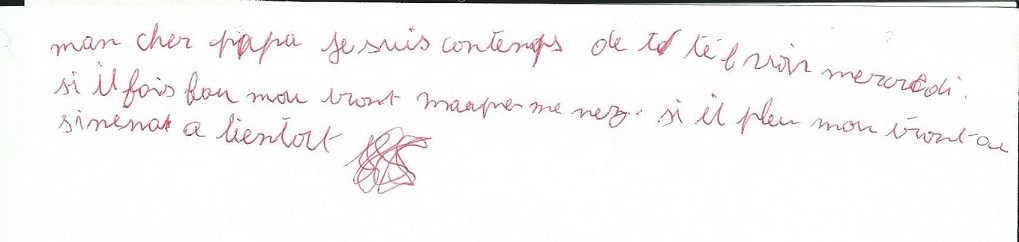 man cher papa je suis contemps de te voir mercredi.
si il fais bau mou iront maapre me nez. si il pleu mou iront au
sinena a bientort